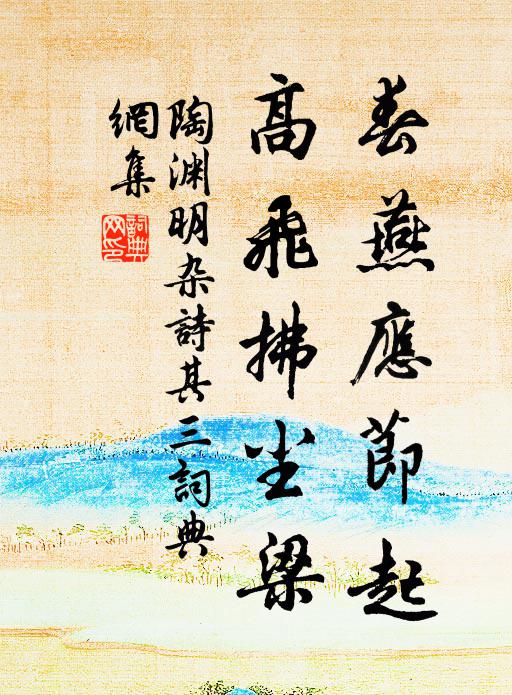 春燕應節起
高飛拂尘梁
陶渊明杂詩其三詞典
網集
詞典网印